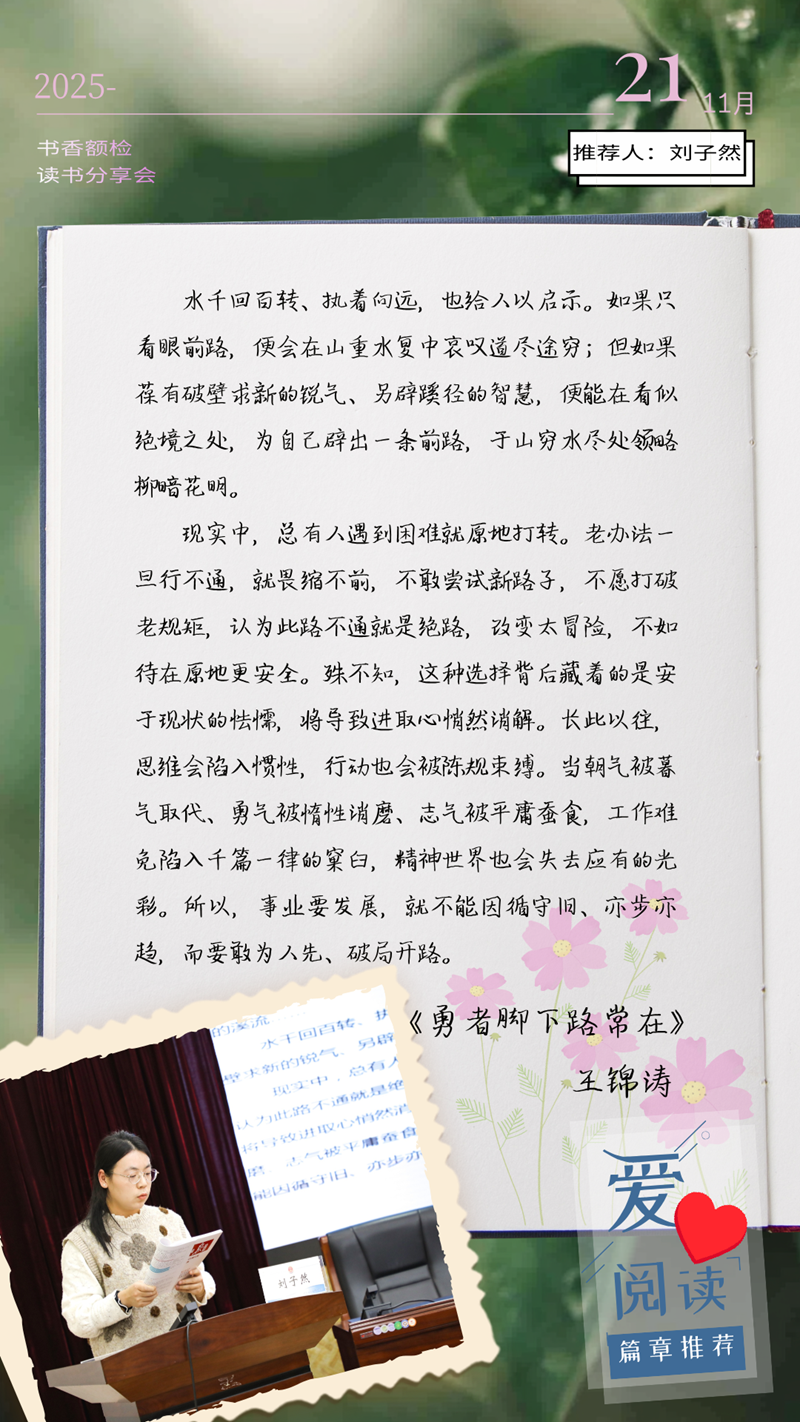 2025-
21
11月
书香额检
读书分享会
推荐人：刘子然
水千回百转、执着向远，也给人以启示。如果只
看眼前路，便会在山重水复中哀叹道尽途穷；但如果
葆有破壁求新的锐气、另辟蹊径的智慧，便能在看似
绝境之处，为自己辟出一条前路，于山穷水尽处领略
柳暗花明。
现实中，总有人遇到困难就原地打转。老办法一
旦行不通，就畏缩不前，不敢尝试新路子，不愿打破
老规矩，认为此路不通就是绝路，改变太冒险，不如
待在原地更安全。殊不知，这种选择背后藏着的是安
于现状的怯懦，将导致进取心悄然消解。长此以往，
思维会陷入惯性，行动也会被陈规束缚。当朝气被暮
气取代、勇气被惰性消磨、志气被平庸蚕食，工作难
免陷入千篇一律的窠臼，精神世界也会失去应有的光
彩。所以，事业要发展，就不能因循守旧、亦步亦
趋，而要敢为人先、破局开路。
《勇者脚下路常在》
王锦涛
的溪流
水千回百转、执
壁求新的锐气、另辟
现实中，总有人
认为此路不通就是绝
将导致进取心悄然消
磨、志气被平庸蚕食
能因循守旧、亦步亦
刘子然
爱
阅读
篇章推荐